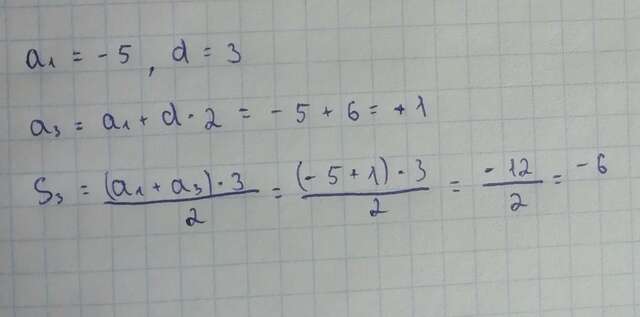 a₁ = -5, d = 3
a₃ = a₁ + d · 2 = -5 + 6 = +1
S₃ = (a₁ + a₃) · 3 / 2 = (-5 + 1) · 3 / 2 = -12 / 2 = -6